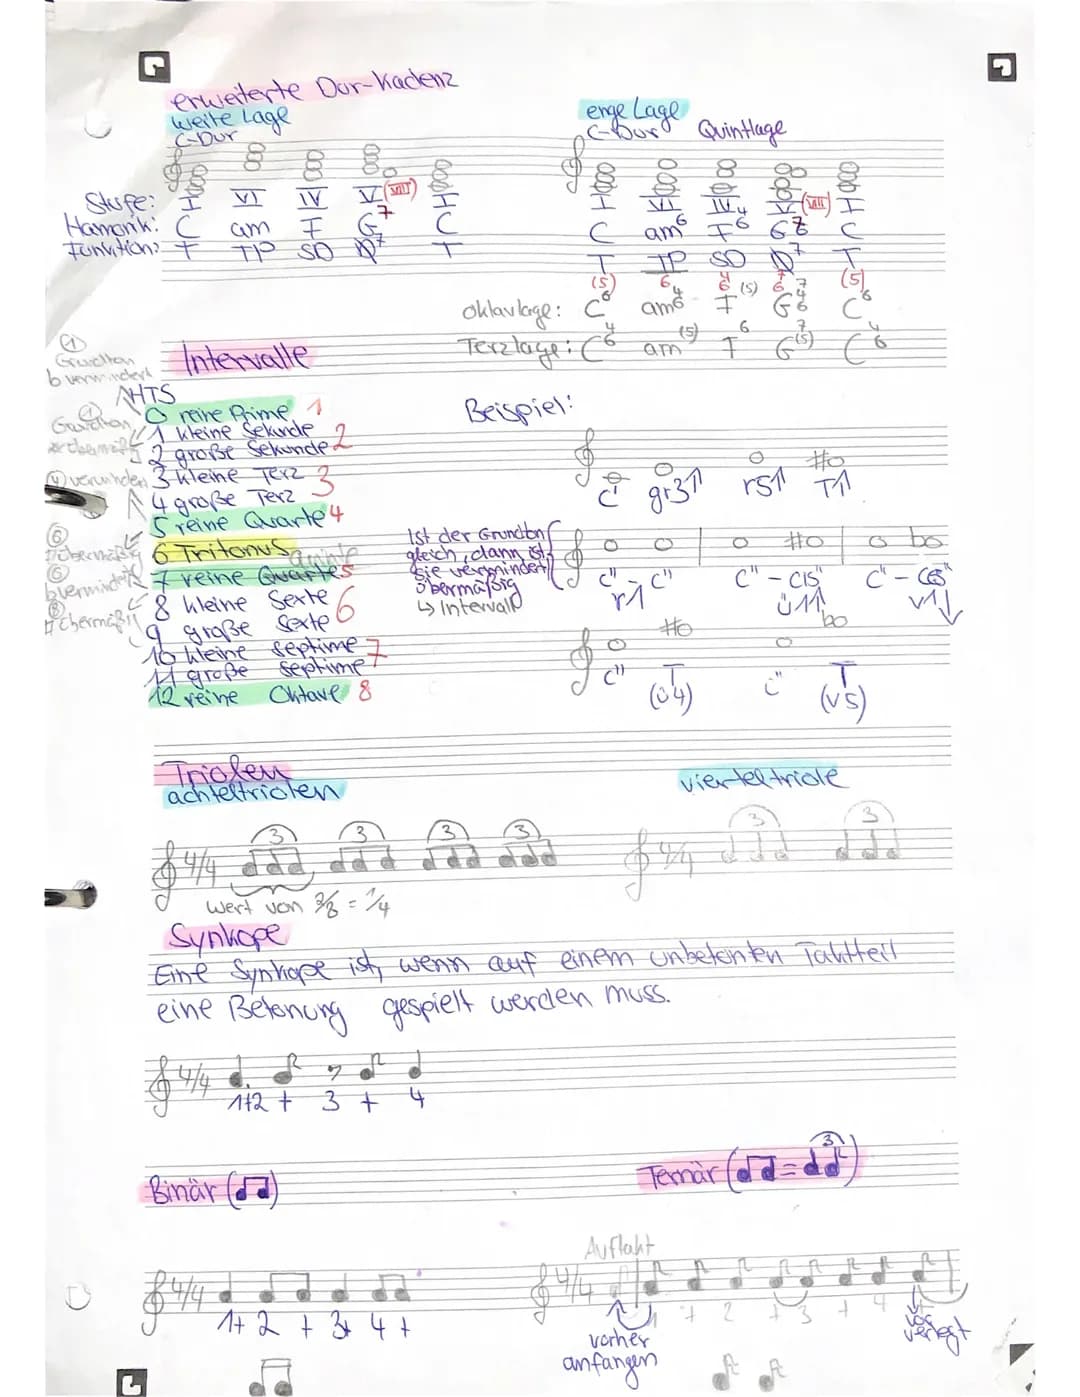 erweiterte Dur-Kadenz
weite Lage
C-Dur
Stufe: I VI IV V (VII) I
Harmonik: C am F G7 C
Funktion: T TP SD D7 T
enge Lage
C-Dur Quintlage
I VI IV V (VII) I
C am6 F 6 4 G C
T TP SD D7 T
(5) 6 4 6 4 (5) 6 7 (5)
Oktavlage: C am F G C
Terzlage: C am F G C
Intervalle
Grundton
b vermindert
HTS
0 reine Prime 1
1 kleine Sekunde
2 große Sekunde 2
3 kleine Terz 3
4 große Terz
5 reine Quarte 4
6 Tritonus
quinte
7 reine Quarte 5
8 kleine Sexte 6
9 große Sexte
10 kleine Septime 7
11 große Septime
12 reine Oktave 8
Beispiel:
c' gr3↑ r5↑ T↑
Ist der Grundton
gleich, dann ist
sie vermindert/
übermäßig
↳ Intervall
c" - c" c" - cis" c" - ces"
r1 ü1↑ v1↓
c" T c" T
(ü4) (v5)
Triolen
achteltriolen
vierteltriole
4/4 3 3 3 3
4/4 3 3
Wert von 2/8 = 1/4
Synkope
Eine Synkope ist, wenn auf einem unbetonten Taktteil
eine Betonung gespielt werden muss.
4/4
1+2 + 3 + 4
Binär (♫)
Ternär (♫ = ♩♪ 3)
Auftakt
4/4
1+ 2 + 3+ 4 +
4/4
1 + 2 + 3 + 4 +
vorher
anfangen
vor
verlegt